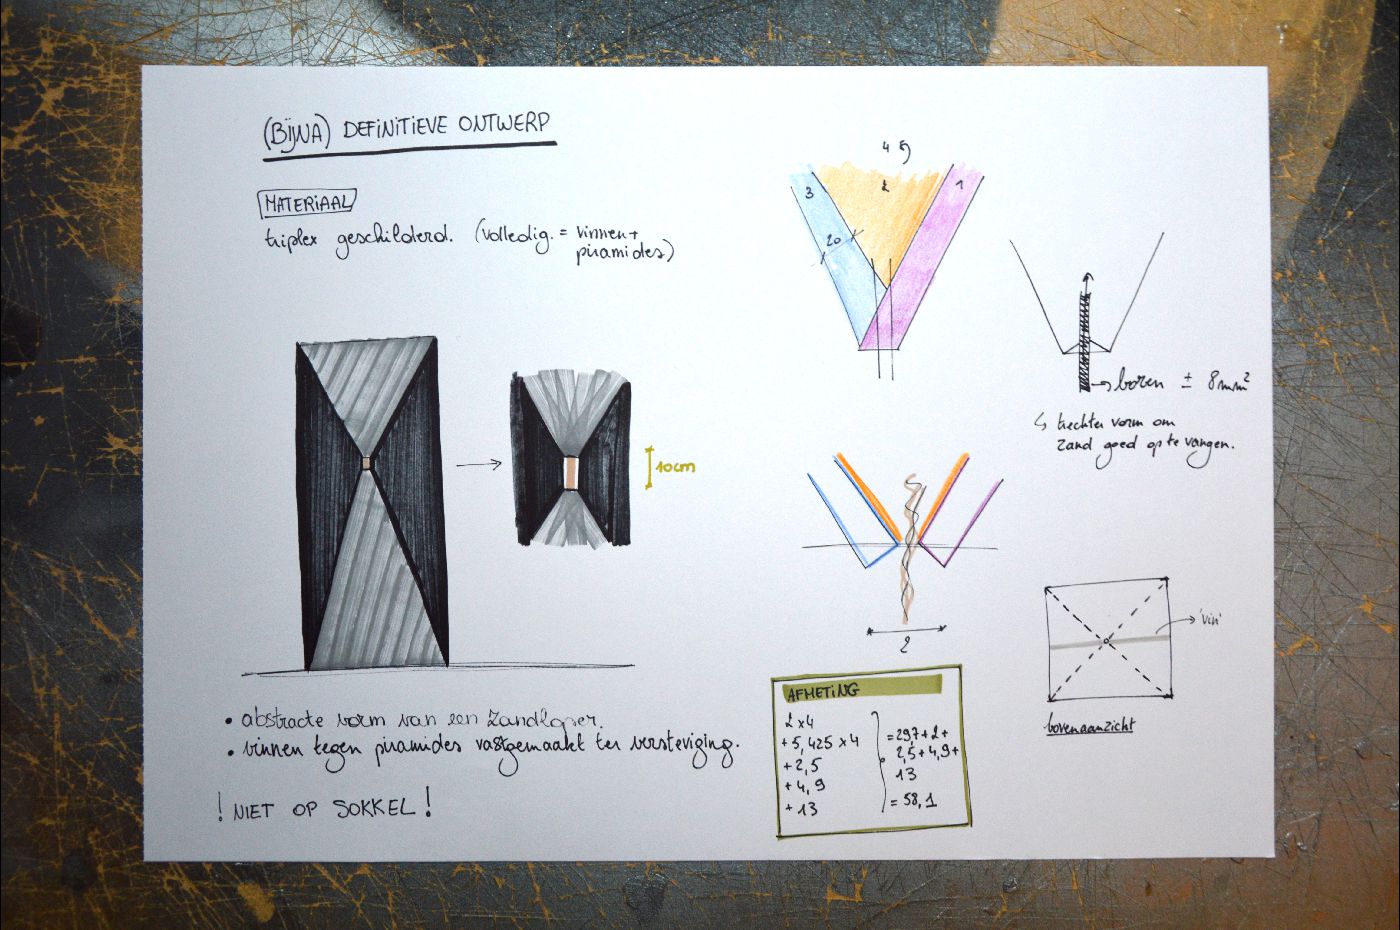 (BIJNA) DEFINITIEVE ONTWERP
MATERIAAL
triplex geschilderd. (volledig. = vinnen +
piramides)
10cm
• abstracte vorm van een zandloper.
• vinnen tegen piramides vastgemaakt ter versteviging.
! NIET OP SOKKEL !
4
3
2
1
20
boren ± 8mm²
↳ trechter vorm om
zand goed op te vangen.
2
AFMETING
2 x 4
+ 5,425 x 4
+ 2,5
+ 4,9
+ 13
= 297 + 2 +
2,5 + 4,9 +
13
= 58,1
'vin'
bovenaanzicht